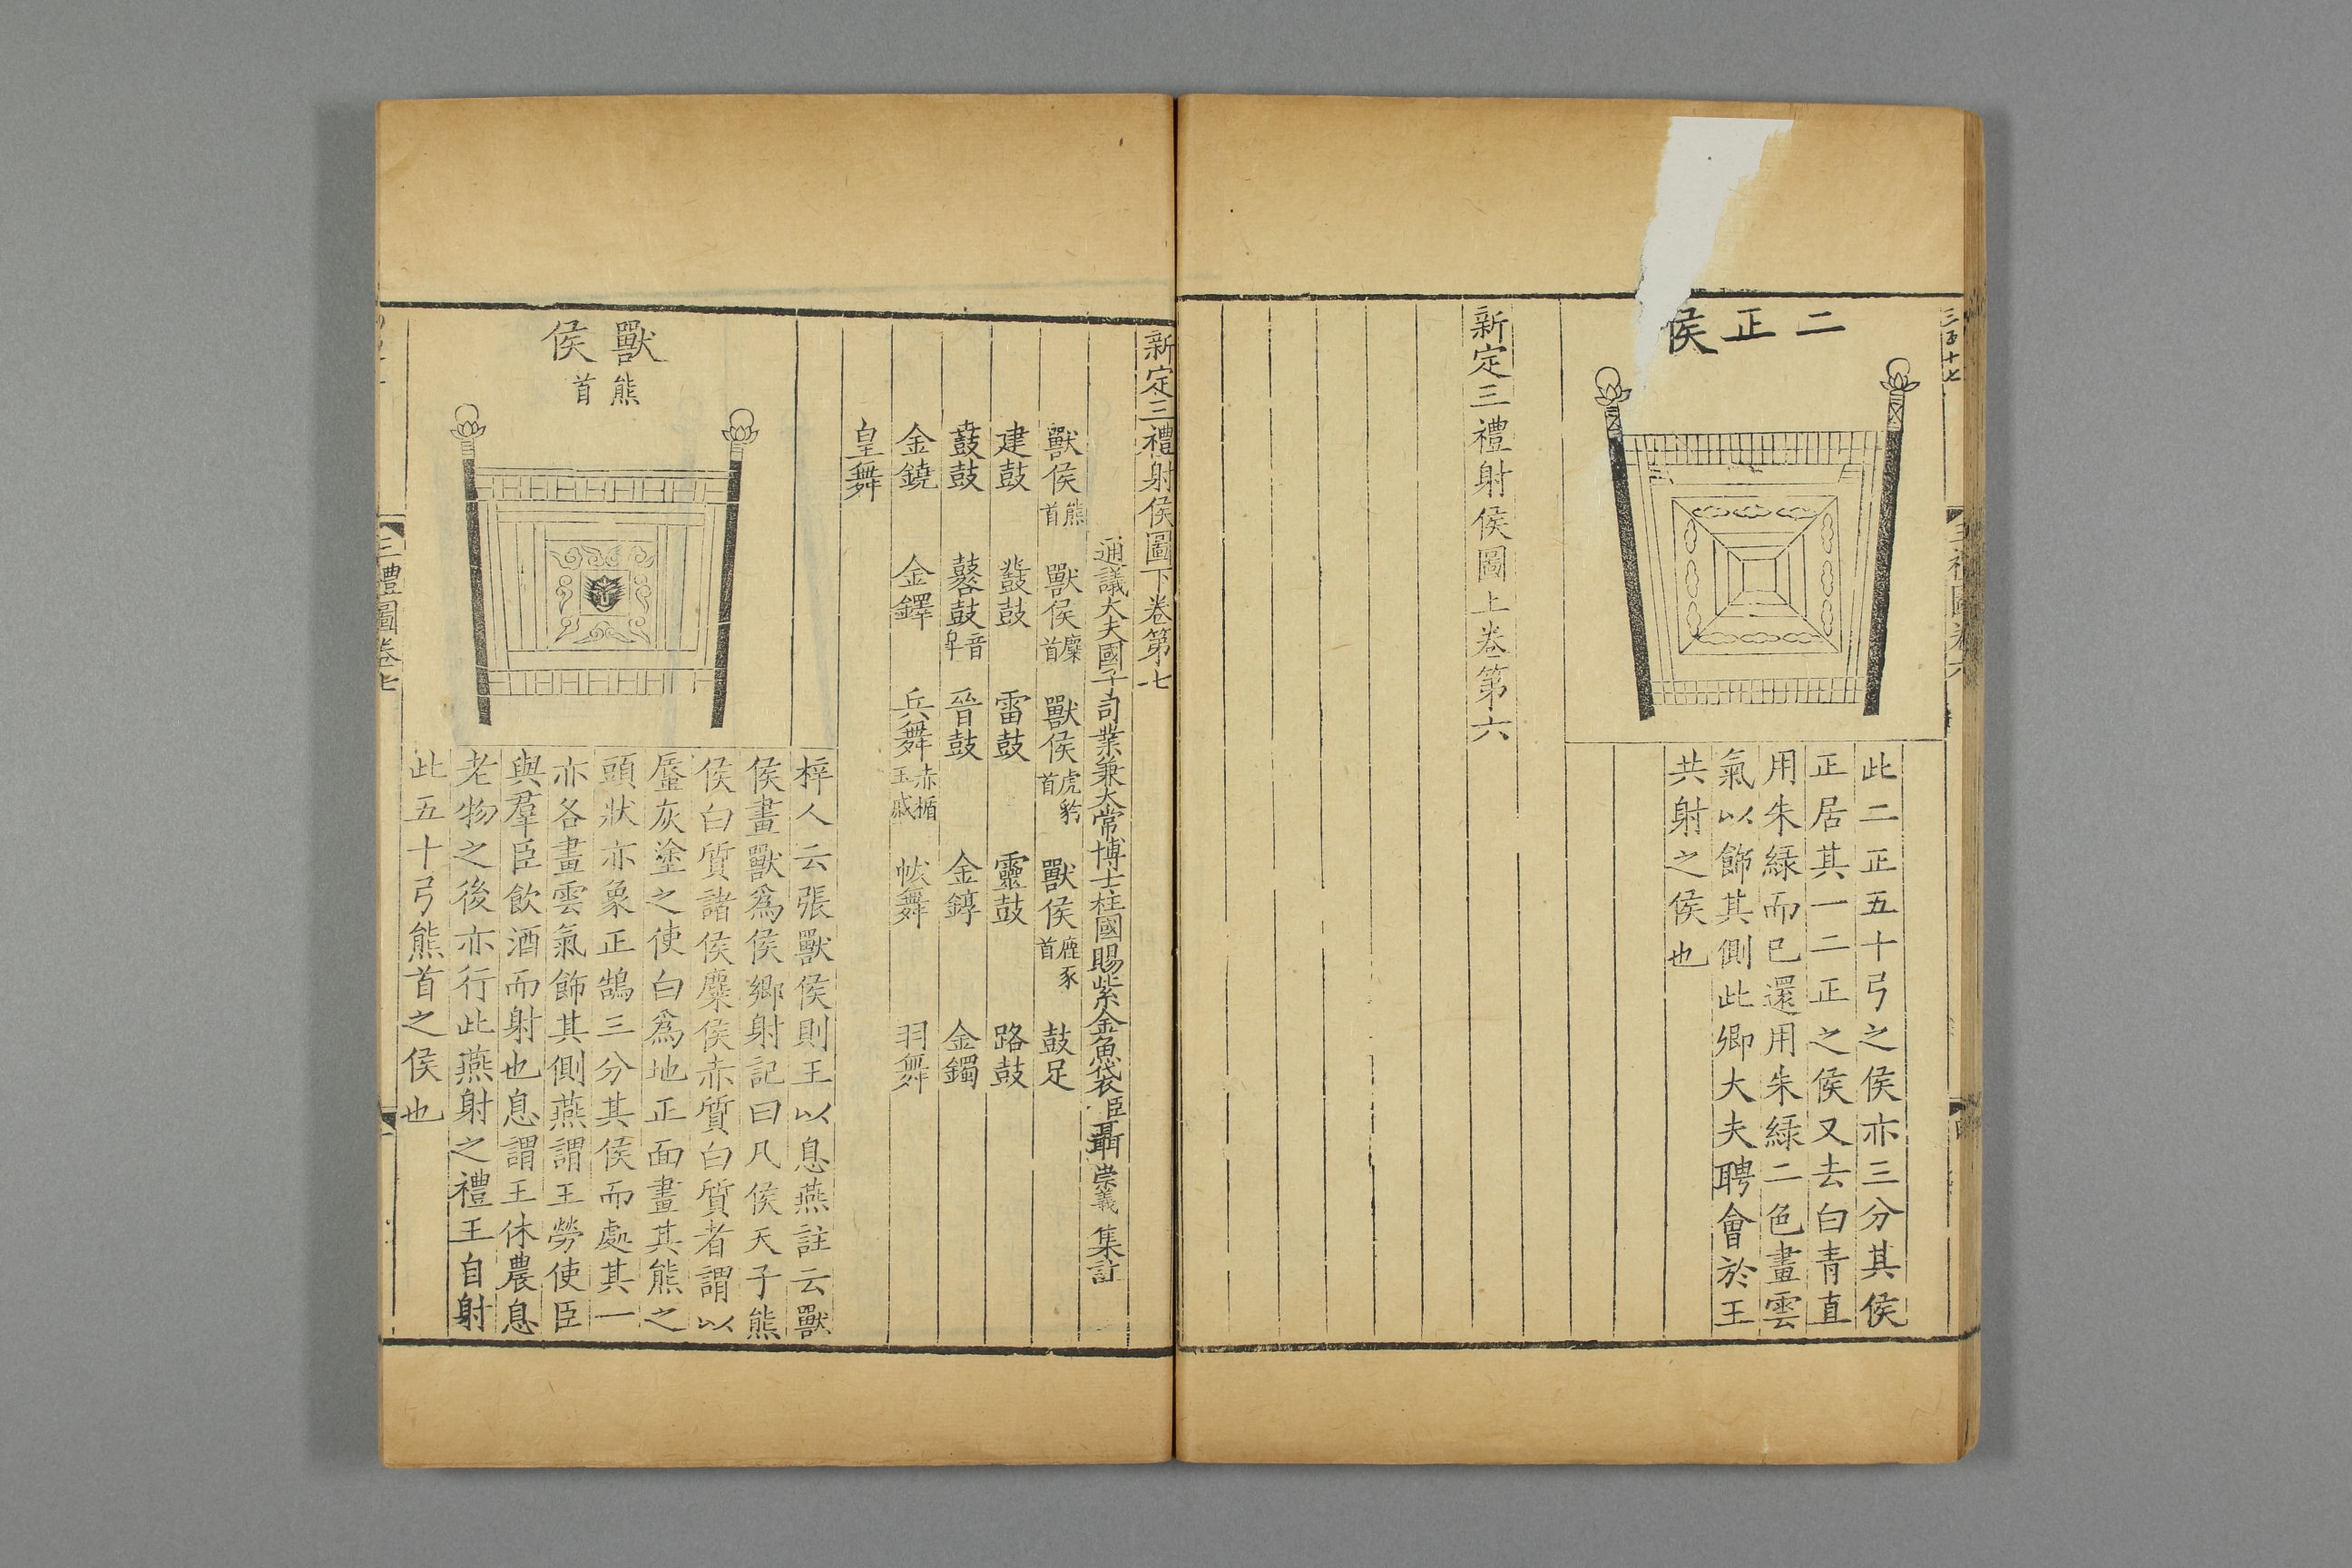 三百十七
二正侯
此二正五十弓之侯亦三分其侯
正居其一二正之侯又去白青直
用朱綠而已還用朱綠二色畫雲
氣以飾其側此卿大夫聘會於王
共射之侯也
新定三禮射侯圖上卷第六
新定三禮射侯圖下卷第七
通議大夫國子司業兼太常博士柱國賜紫金魚袋臣聶崇義集註
獸侯熊首 獸侯麋首 獸侯虎豹首 獸侯鹿豕首 鼓足
建鼓 鼖鼓 雷鼓 靈鼓 路鼓
鼖鼓 鼛鼓音皐 晉鼓 金錞 金鐲
金鐃 金鐸 兵舞赤楯玉戚 帗舞 羽舞
皇舞
獸侯熊首
梓人云張獸侯則王以息燕註云獸
侯畫獸爲侯鄉射記曰凡侯天子熊
侯白質諸侯麋侯赤質白質者謂以
蜃灰塗之使白爲地正面畫其熊之
頭狀亦象正鵠三分其侯而處其一
亦各畫雲氣飾其側燕謂王勞使臣
與羣臣飲酒而射也息謂王休農息
老物之後亦行此燕射之禮王自射
此五十弓熊首之侯也
三禮圖卷七